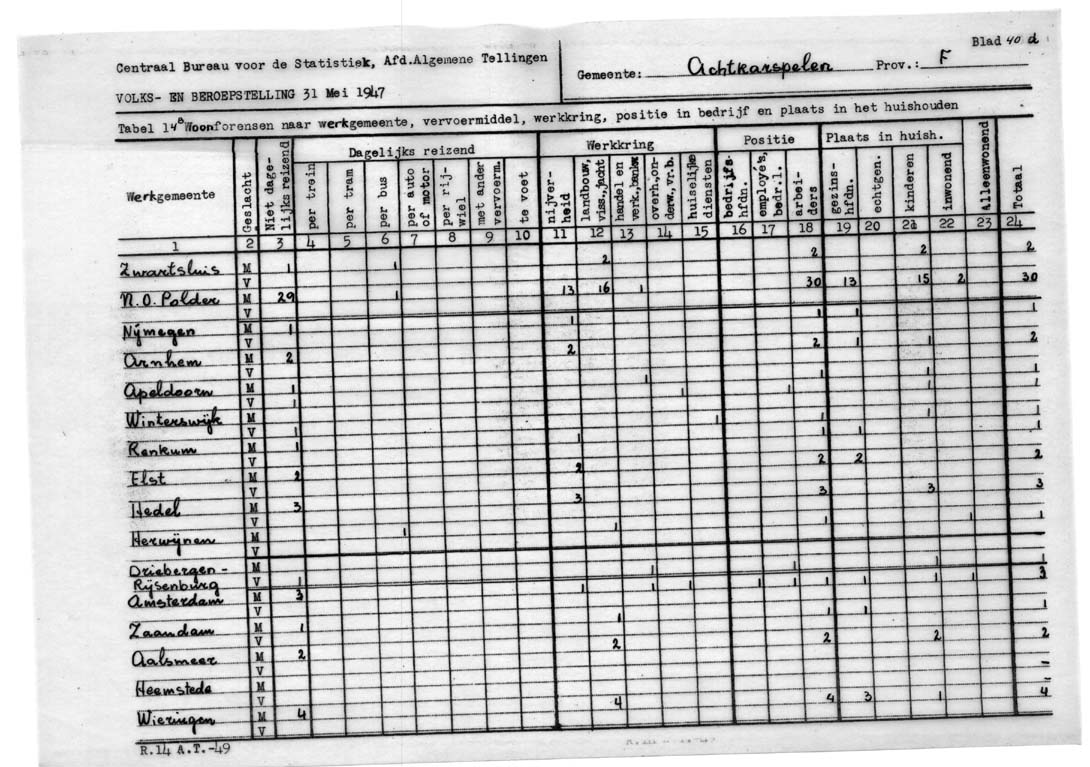 Blad 40 d
Centraal Bureau voor de Statistiek, Afd.Algemene Tellingen
Gemeente: Achtkarspelen Prov.: F
VOLKS- EN BEROEPSTELLING 31 Mei 1947
Tabel 14e Woonforensen naar werkgemeente, vervoermiddel, werkkring, positie in bedrijf en plaats in het huishouden
Werkgemeente Geslacht Niet dagelijks reizend Dagelijks reizend Werkkring Positie Plaats in huish. Alleenwonend Totaal
per trein per tram per bus per auto of motor per rijwiel met ander vervoerm. te voet nijverheid landbouw, viss., jacht handel en verk., bankw overh., onderw., vr.b. huiselijke diensten bedrijfshfdn. employé's, bedr.l. arbeiders gezinshfdn. echtgen. kinderen inwonend
1 2 3 4 5 6 7 8 9 10 11 12 13 14 15 16 17 18 19 20 21 22 23 24
Zwartsluis M 1 1 2 2 2 2
V
N.O. Polder M 29 1 13 16 1 30 13 15 2 30
V
Nijmegen M 1 1 1 1 1
V
Arnhem M 2 2 2 1 1 2
V
Apeldoorn M 1 1 1 1 1
V 1 1 1 1 1
Winterswijk M
V 1 1 1 1 1
Renkum M 1 1 1 1 1
V
Elst M 2 2 2 2 2
V
Hedel M 3 3 3 3 3
V
Herwijnen M 1 1 1 1 1
V
Driebergen-
Rijsenburg M
V 1 1 1 1 1
Amsterdam M 3 1 1 1 1 1 1 1 1 1 3
V
Zaandam M 1 1 1 1 1
V
Aalsmeer M 2 2 2 2 2
V
Heemstede M
V
Wieringen M 4 4 4 3 1 4
V
R.14 A.T.-49